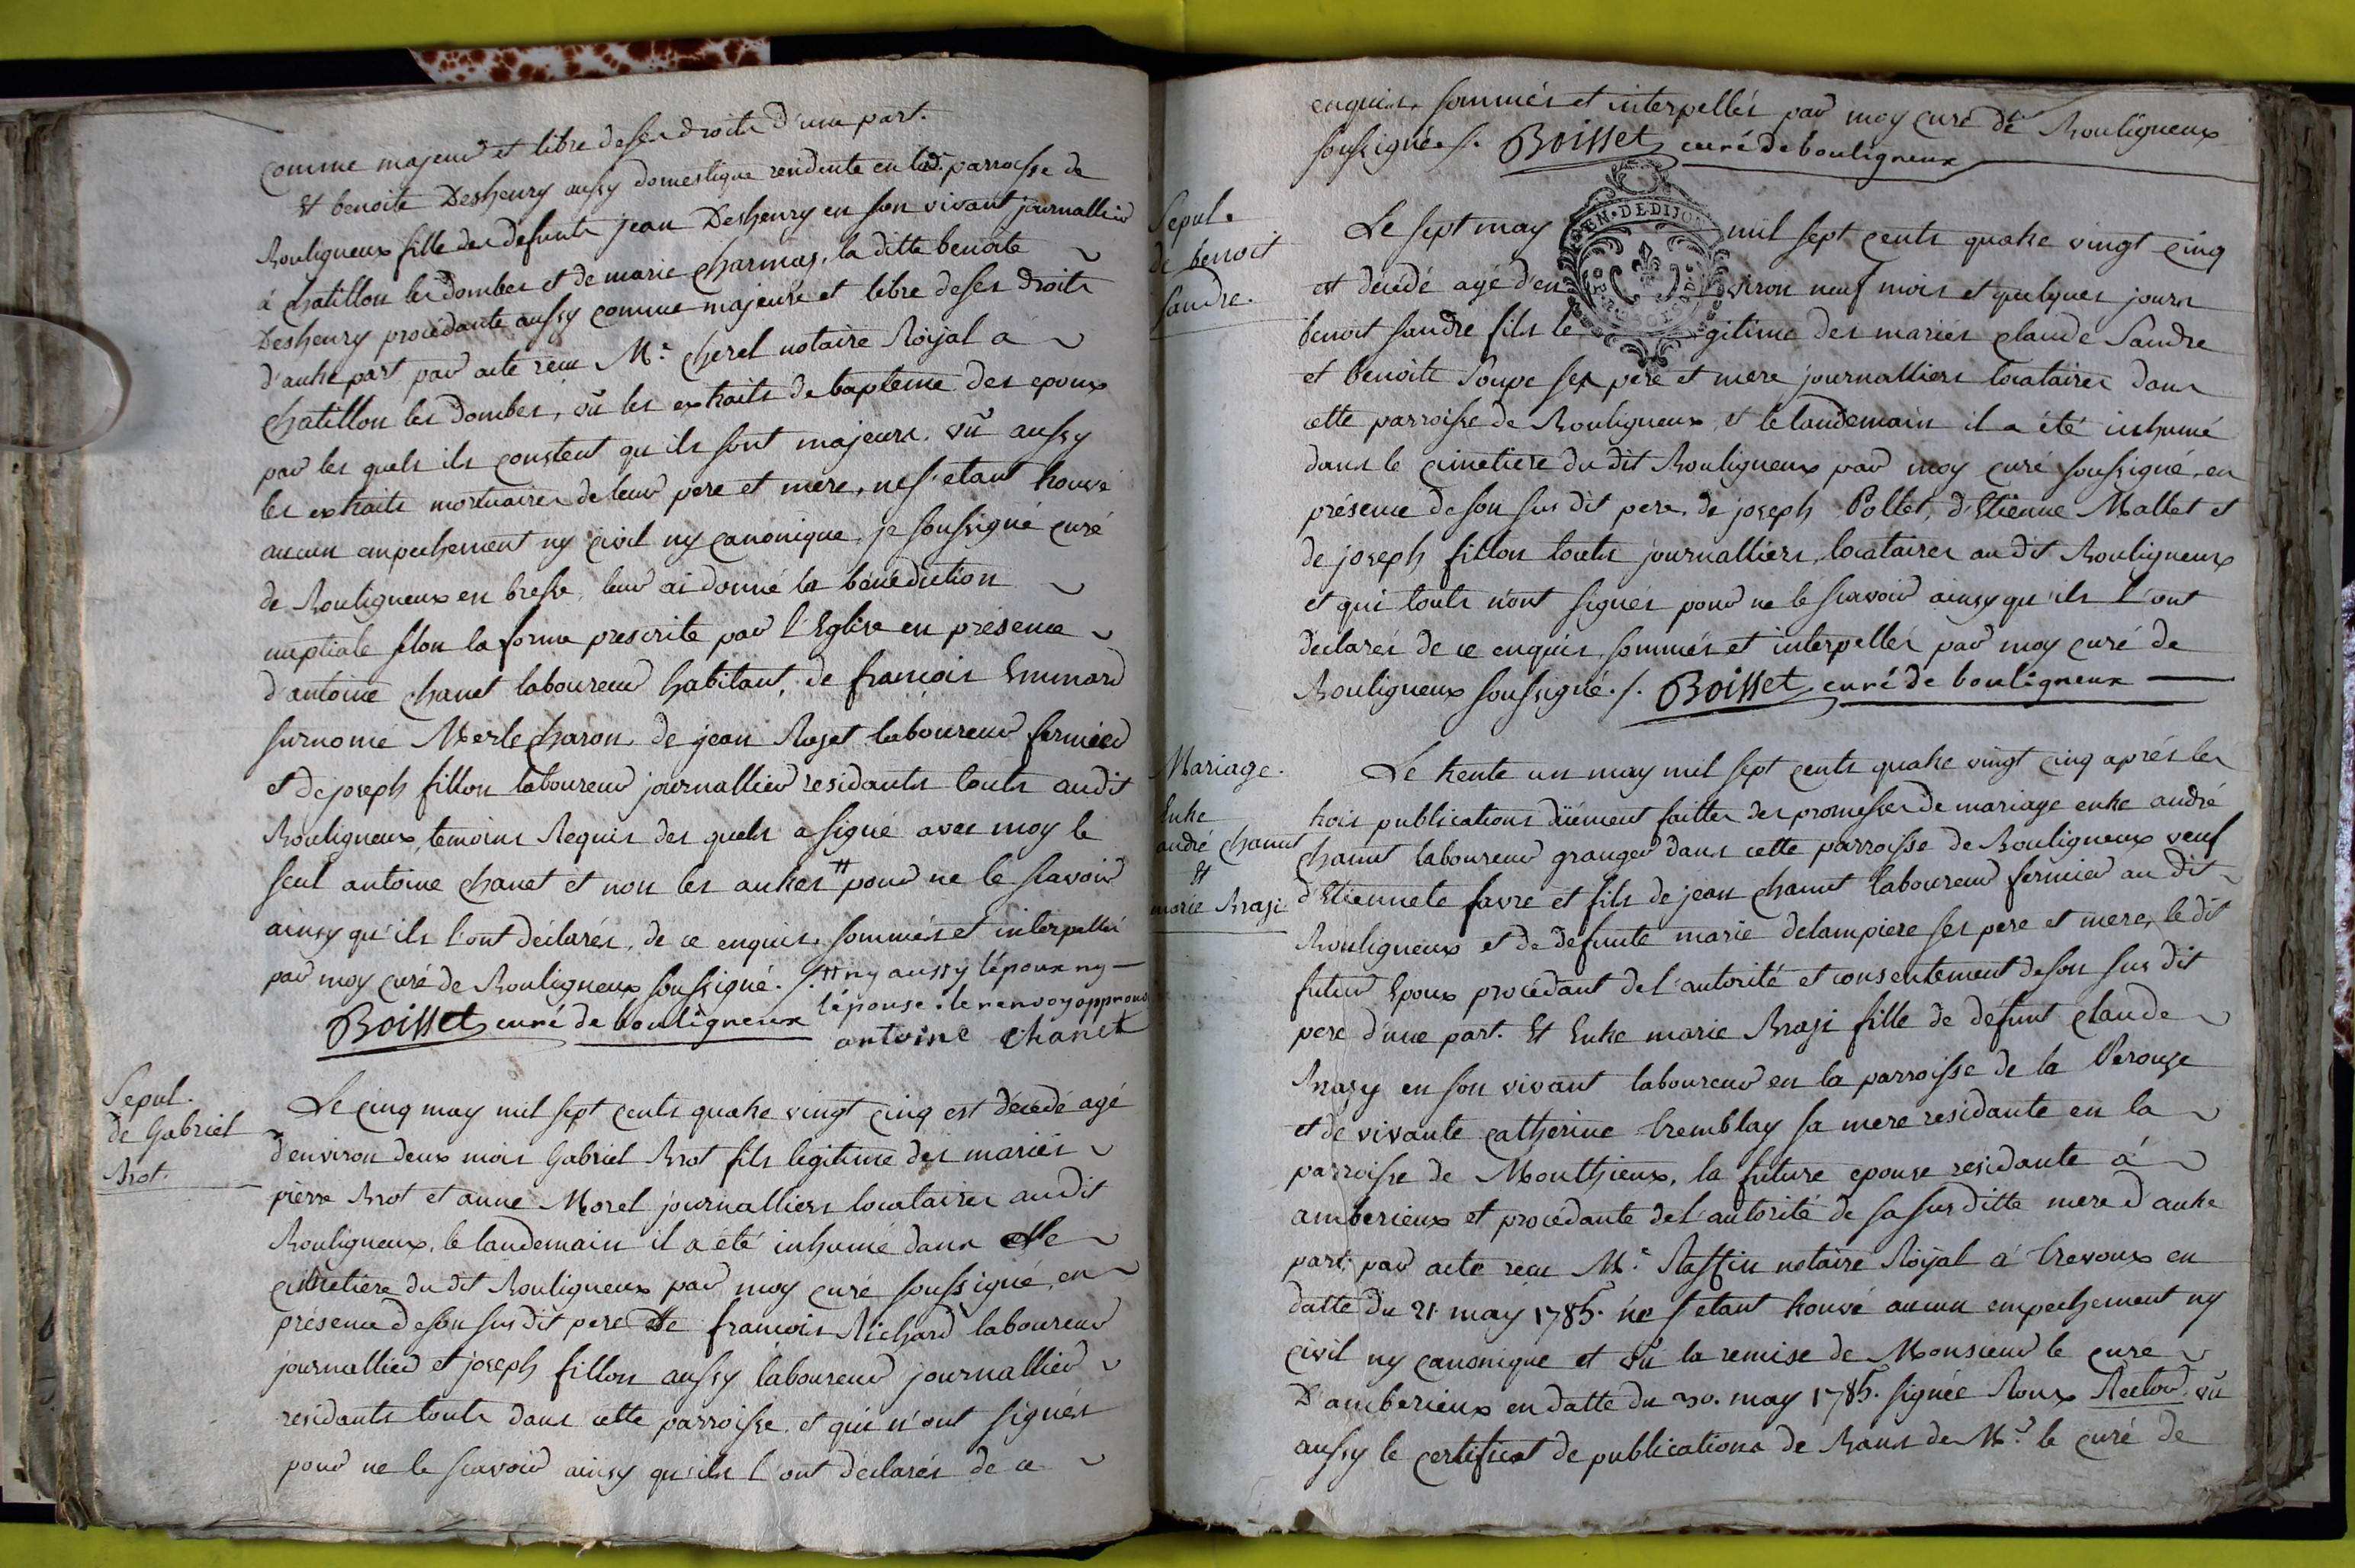 comme majeur et libre de ses droits d'une part.
Et benoite Deshenry aussy domestique residente en lad. parroisse de
Bouligneux fille des defunts jean Deshenry en son vivant journallier
á chatillon les dombes et de marie charmas, la ditte benoite
Deshenry procédante aussy comme majeure et libre de ses droits
d'autre part par acte recu Mᵉ. cherel notaire Roÿal a
chatillon les dombes, vû les extraits de bapteme des epoux
par les quels ils constent qu'ils sont majeurs. vû aussy
les extraits mortuaires de leur pere et mere, ne s'etant trouvé
aucun empechement ny civil ny canonique, je soussigné curé
de Bouligneux en bresse, leur ai donné la bénédiction
nuptiale selon la forme prescrite par l'Eglise en présence
d'antoine chanet laboureur habitant, de françois Emmard
surnomé Merle charon, de jean Roset laboureur fermier
et de joseph fillon laboureur journallier residants touts audit
Bouligneux, temoins Requis des quels a signé avec moy le
seul antoine chanet et non les autres # pour ne le scavoir
ainsy qu'ils l'ont déclarés, de ce enquis, sommés et interpellés
par moy curé de Bouligneux soussigné. /. # ny aussy lépoux ny
lépouse. le renvoy approuvé
Boisset curé de bouligneux
antoine chanet
Sepul.
de Gabriel
Brot.
Le cinq may mil sept cents quatre vingt cinq est décédé agé
d'environ deux mois Gabriel Brot fils legitime des mariés
pierre Brot et anne Morel journalliers locataires audit
Bouligneux, le landemain il a été inhumé dans le
cimetiere du dit Bouligneux par moy curé soussigné, en
présence de son sus dit pere de françois Richard laboureur
journallier et joseph fillon aussy laboureur journallier
residants touts dans cette parroisse, et qui n'ont signés
pour ne le scavoir ainsy qu'ils l'ont déclarés de ce
enquis, sommés et interpellés par moy curé de Bouligneux
soussigné. /. Boisset curé de bouligneux
EN. DE DIJON
Sepul.
de benoit
Sandre.
Le sept may mil sept cents quatre vingt cinq
est decédé agé d'environ neuf mois et quelques jours
benoit Sandre fils legitime des mariés claude Sandre
et benoite Soupe ses pere et mere journalliers locataires dans
cette parroisse de Bouligneux, et le landemain il a été inhumé
dans le cimetiere du dit Bouligneux par moy curé soussigné, en
présence de son sus dit pere, de joseph Pollet, d'Etienne Mallet et
de joseph fillon touts journalliers, locataires au dit Bouligneux
et qui touts n'ont signés pour ne le scavoir ainsy qu'ils l'ont
déclarés de ce enquis, sommés et interpellés par moy curé de
Bouligneux soussigné. /. Boisset curé de bouligneux
Mariage.
Entre
andré chanut
Et
marie Brasi
Le trente un may mil sept cents quatre vingt cinq aprés les
trois publications düement faittes des promesses de mariage entre andré
chanut laboureur granger dans cette parroisse de Bouligneux veuf
d'Etiennete favre et fils de jean chanut laboureur fermier au dit
Bouligneux et de defunte marie delampiere ses pere et mere, le dit
futur Epoux procédant de l'autorité et consentement de son sus dit
pere d'une part. Et Entre marie Brasi fille de défunt claude
Brasy en son vivant laboureur en la parroisse de la Perouse
et de vivante catherine tremblay sa mere residante en la
parroisse de Monthieux, la future epouse residante á
amberieux et procédante de l'autorité de sa sus ditte mere d'autre
part. par acte recu Mᵉ. Raffin notaire Roÿal á trevoux en
datte du 21. may 1785. ne s'etant trouvé aucun empechement ny
civil ny canonique et vû la remise de Monsieur le curé
D'amberieux en datte du 30. may 1785. signée Roux Rector. vû
aussy le certificat de publications de Bans de Mʳ. le curé de